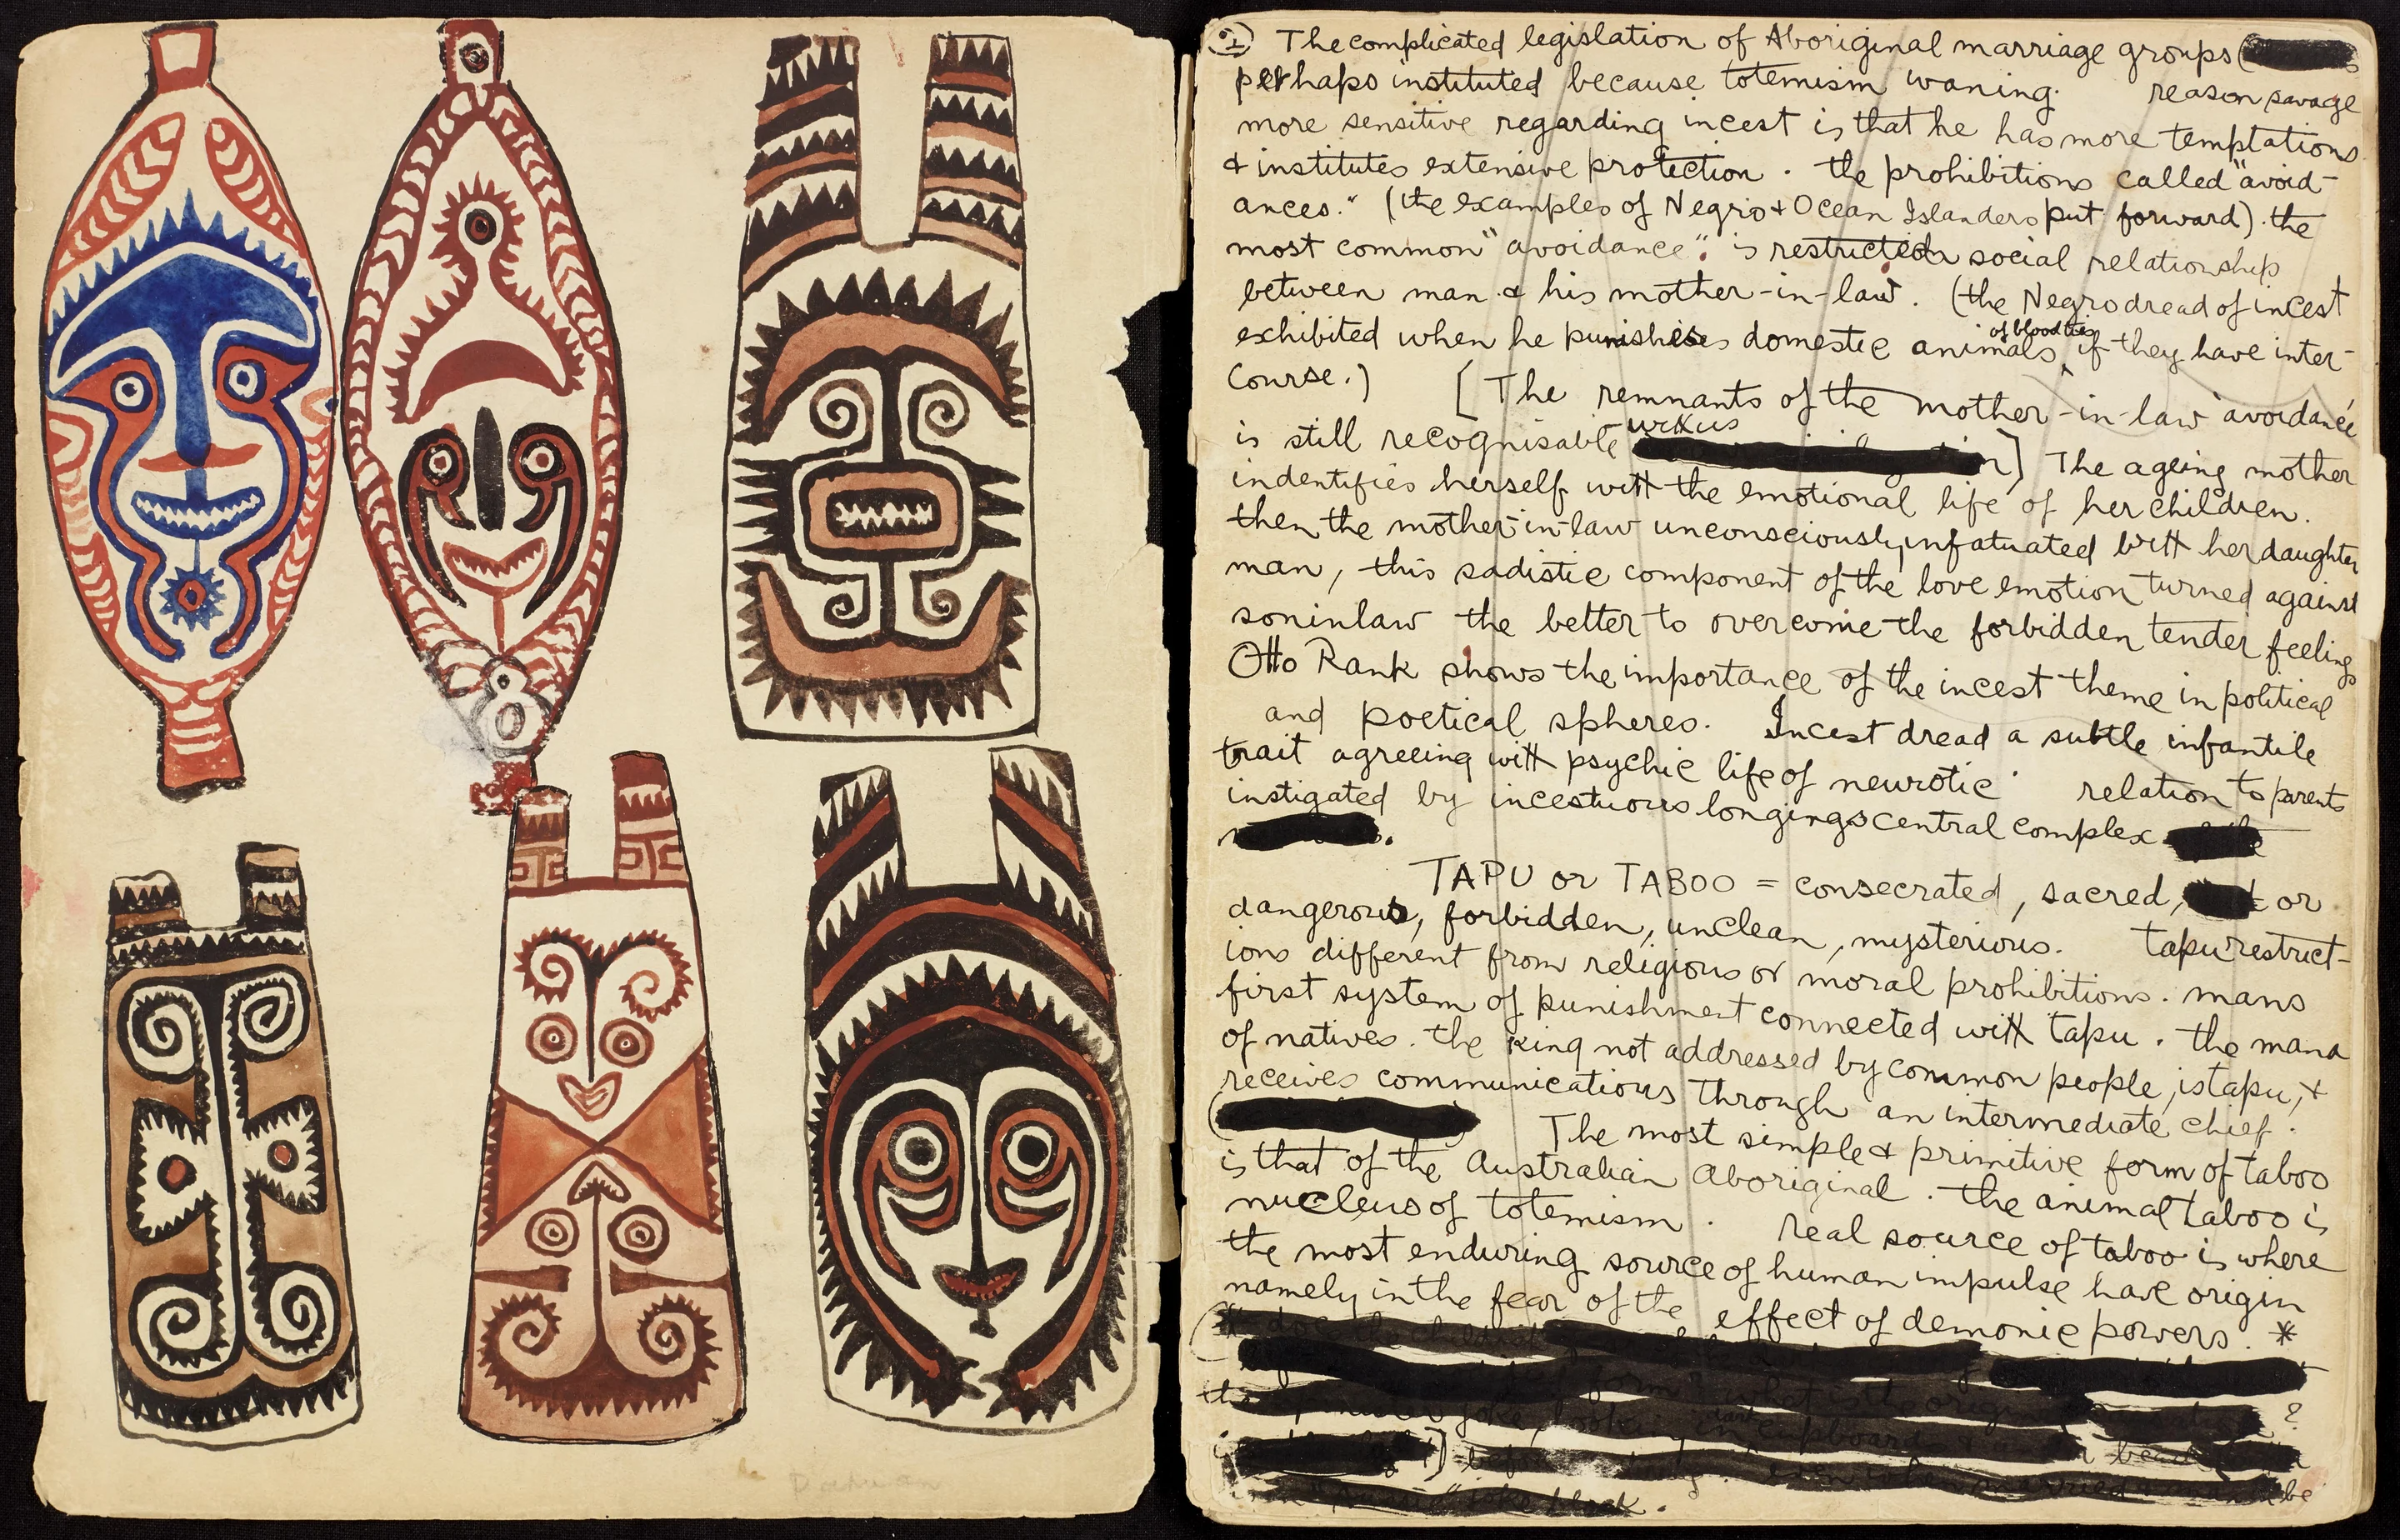 Papuan
The complicated legislation of Aboriginal marriage groups (
perhaps instituted because totemism waning. reason savage
more sensitive regarding incest is that he has more temptations
& institutes extensive protection. the prohibitions called "avoid-
ances." (the examples of Negro & Ocean Islanders put forward). the
most common "avoidance": is restricted social relationship
between man & his mother-in-law. (the Negro dread of incest
exhibited when he punishes domestic animals of blood ties if they have inter-
course.) [The remnants of the mother-in-law avoidance
is still recognisable with us ] The ageing mother
indentifies herself with the emotional life of her children.
then the mother-in-law unconsciously infatuated with her daughter
man, this sadistic component of the love emotion turned against
soninlaw the better to overcome the forbidden tender feelings
Otto Rank shows the importance of the incest theme in political
and poetical spheres. Incest dread a subtle infantile
trait agreeing with psychic life of neurotic. relation to parents
instigated by incestuous longings central complex
TAPU or TABOO = consecrated, sacred, or
dangerous, forbidden, unclean, mysterious. tapu restrict-
ions different from religious or moral prohibitions. mans
first system of punishment connected with tapu. the mana
of natives. the king not addressed by common people, is tapu, &
receives communications through an intermediate chief.
( ) The most simple & primitive form of taboo
is that of the Australian Aboriginal. the animal taboo is
nucleus of totemism. real source of taboo is where
the most enduring source of human impulse have origin
namely in the fear of the effect of demonic powers. *